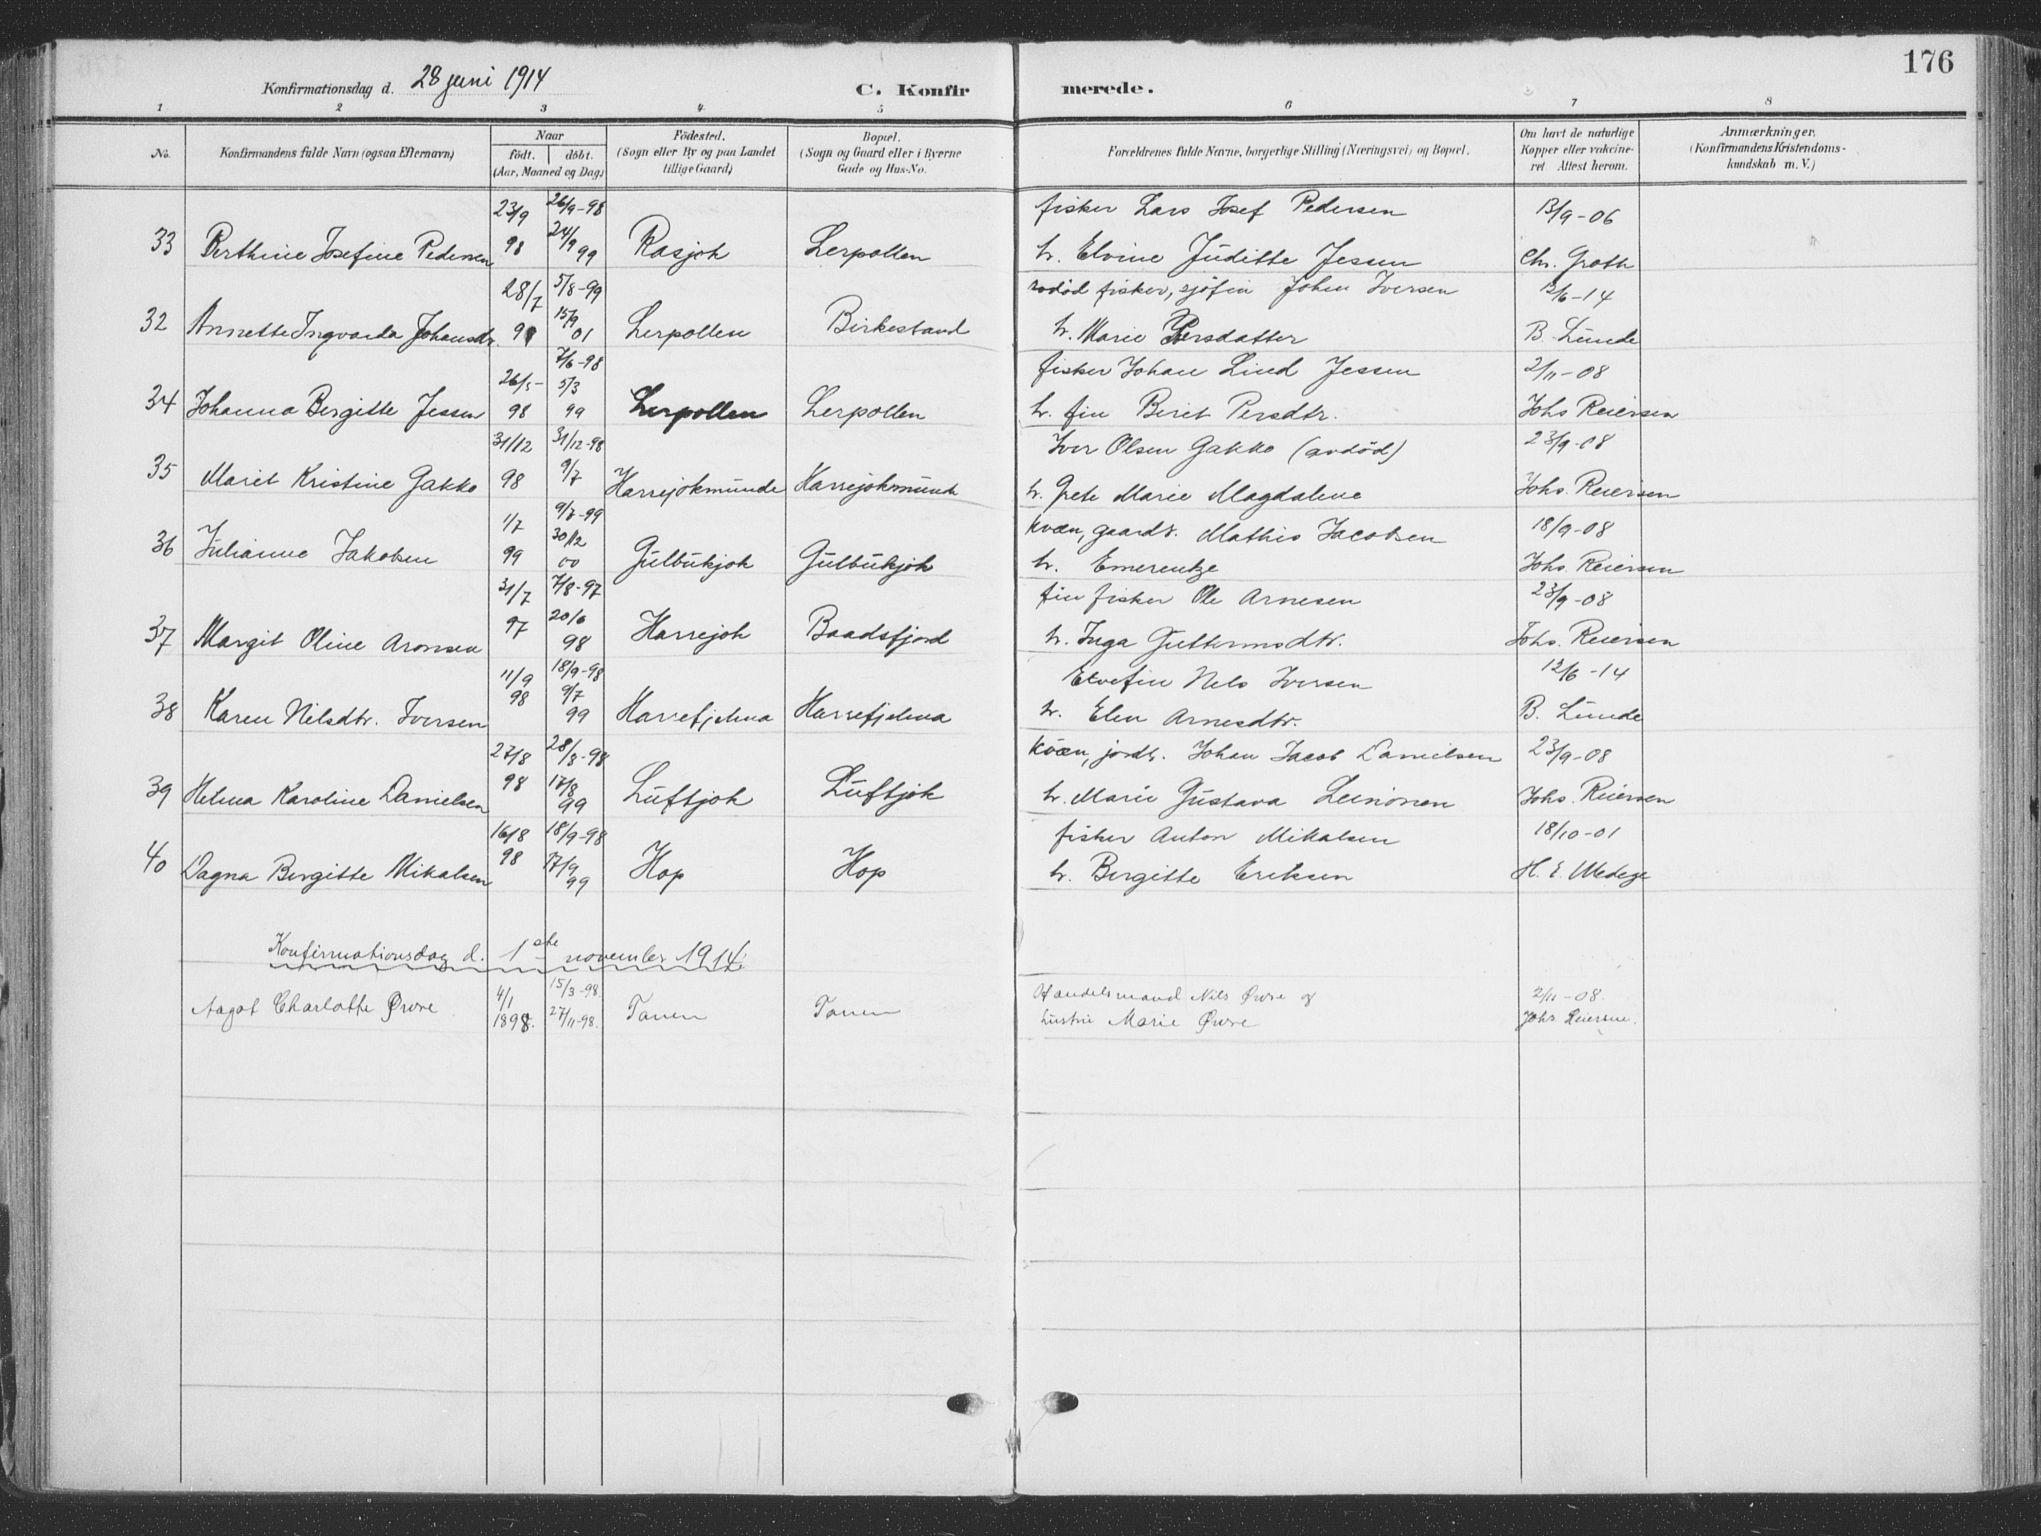 176
Konfirmationsdag d. 28 juni 1914
C. Konfirmerede.
1 2 3 4 5 6 7 8
No.
Konfirmandens fulde Navn (ogsaa Efternavn)
Naar
födt. döbt.
(Aar, Maaned og Dag)
Födested.
(Sogn eller By og paa Landet
tillige Gaard)
Bopæl.
(Sogn og Gaard eller i Byerne
Gade og Hus-No.
Forældrenes fulde Navne, borgerlige Stilling (Næringsvei) og Bopæl.
Om havt de naturlige
Kopper eller vakcine-
ret Attest herom.
Anmærkninger.
(Konfirmandens Kristendoms-
kundskab m. V.)
23/9 26/9-98 fisker Lars Josef Pedersen 13/9-06
33 Berthine Josefine Pedersen 98 24/9 99 Rasjok Lerpollen h. Elvine Juditte Jessen Chr. Groth
28/7 5/8-99 fisker, sjöfin Johan Iversen 12/6-14
32 Annette Ingvarda Johansdr. 15/9 01 Lerpollen Birkestrand h. Marie Persdatter B. Lunde
26/5- 7/6-98 fisker Johan Lind Jessen 2/11-08
34 Johanna Bergitte Jessen 98 5/3 99 Lerpollen Lerpollen h. fin Beret Persdtr. Johs Reiersen
31/12 31/12-98 Iver Olsen Gakko (avdöd) 23/9-08
35 Maret Kristine Gakko 98 9/7 Harrejokmunde Harrejokmunde h. Grete Marie Magdalene Johs. Reiersen
1/7 9/7-99 kvæn, gaardr. Mathis Jacobsen 18/9-08
36 Julianne Jakobsen 99 30/12 00 Gulbukjok Gulbukjok h. Emerentze Johs. Reiersen
31/7 7/8-97 fin fisker Ole Arnesen 23/9-08
37 Margit Oline Aronsen 97 20/6 98 Harrejok Baadsfjord h. Inga Guttormsdtr. Johs. Reiersen
11/9 18/9-98 Elvefin Nels Iversen 12/6-14
38 Karen Nilsdtr. Iversen 98 9/7 99 Harrefjelma Harrefjelma h. Elen Arnesdtr. B. Lunde
27/8 28/8-98 kvæn, jordb. Johan Jacob Danielsen 23/9-08
39 Helma Karoline Danielsen 98 17/8 99 Luftjok Luftjok h. Marie Gustava Leinonen Johs. Reiersen
16/8 18/9-98 fisker Anton Mikalsen 18/10-01
40 Dagna Bergitte Mikalsen 98 17/9 99 Hop Hop h. Bergitte Eriksen H. E. Wedege
Konfirmationsdag d. 1ste november 1914
4/1 15/3-98. Handelsmand Nils Øwre og 2/11-08.
Aagot Charlotte Øwre 1898. 27/11-98. Tanen Tanen hustru Marie Øwre Johs Reiersen.